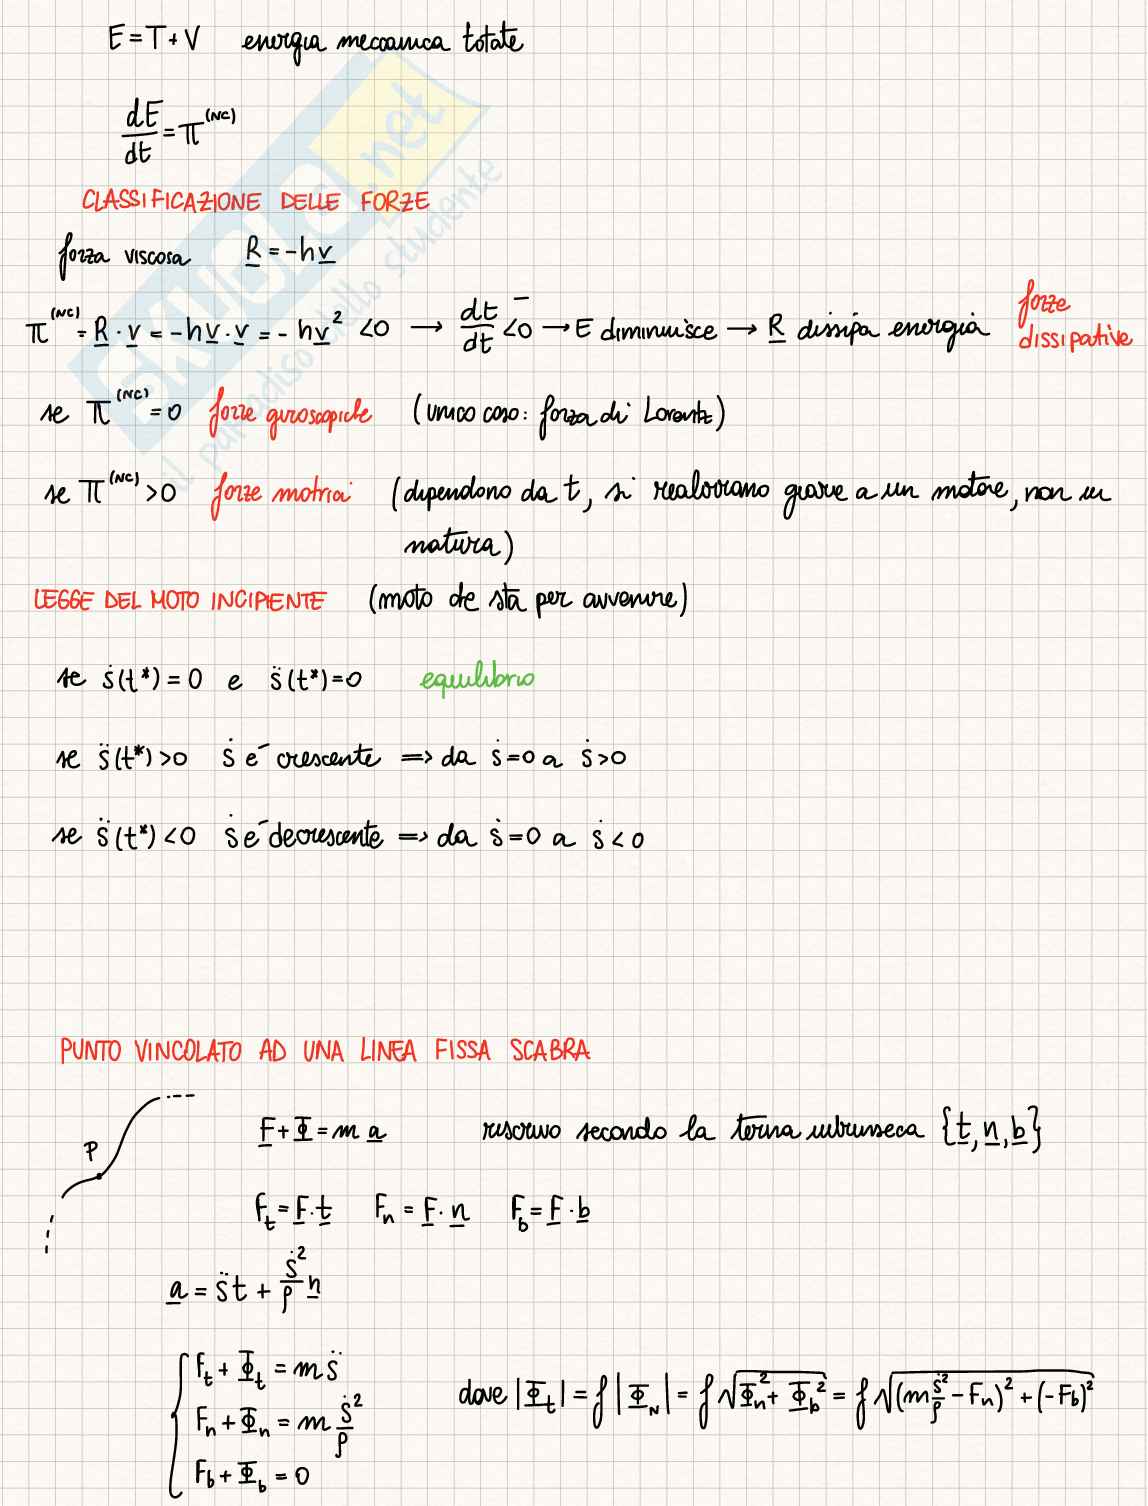 E = T + V energia meccanica totale
dE/dt = Π^(NC)
CLASSIFICAZIONE DELLE FORZE
forza viscosa R = -hv
Π^(NC) = R · v = -hv · v = - hv² <0 → dt/dt <0 → E diminuisce → R dissipa energia forze dissipative
se Π^(NC) = 0 forze giroscopiche (unico caso: forza di Lorentz)
se Π^(NC) >0 forze motrici (dipendono da t, si realizzano grazie a un motore, non in
natura)
LEGGE DEL MOTO INCIPIENTE (moto che sta per avvenire)
se ṡ(t*) = 0 e s̈(t*)=0 equilibrio
se s̈(t*) >0 ṡ è crescente ⇒ da ṡ=0 a ṡ>0
se s̈(t*) <0 ṡ è decrescente ⇒ da ṡ=0 a ṡ<0
PUNTO VINCOLATO AD UNA LINEA FISSA SCABRA
P
F + Φ = m a riscrivo secondo la terna intrinseca {t, n, b}
F_t = F · t F_n = F · n F_b = F · b
a = s̈ t + ṡ²/ρ n
F_t + Φ_t = m s̈
F_n + Φ_n = m ṡ²/ρ
F_b + Φ_b = 0
dove |Φ_t| = f |Φ_N| = f √(Φ_n² + Φ_b²) = f √((m ṡ²/ρ - F_n)² + (-F_b)²)
SKUOLA.net
il paradiso dello studente